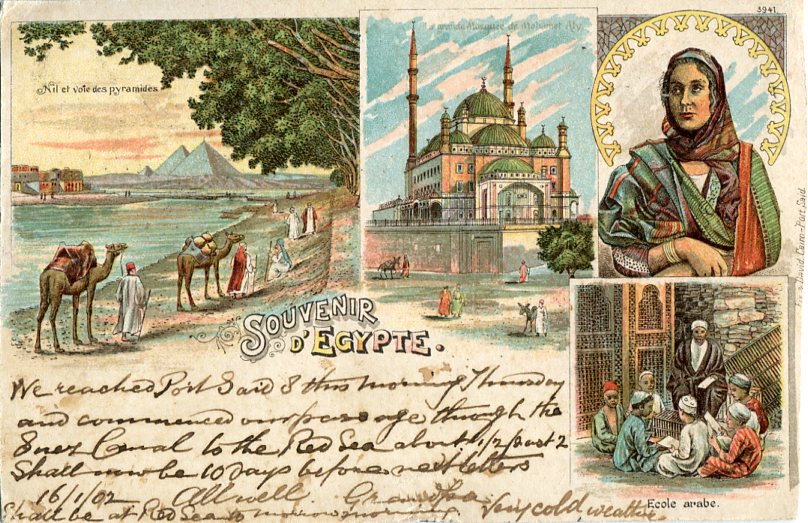 3941
La grande Mosquée de Mohamet Aly.
Nil et voie des pyramides
David, Cairo-Port Said.
SOUVENIR
D'EGYPTE.
Ecole arabe.
We reached Port Said 8 this morning Thursday
and commenced our passage through the
Suez Canal to the Red Sea about 1/2 past 2
Shall now be 10 Days before next letters
16/1/02 All well. Grandpa
Shall be at Red Sea tomorrow morning. Very cold weather